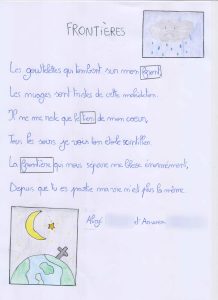 FRONTIÈRES
Les gouttelettes qui tombent sur mon
Les nuages sont tristes de cette
Il ne me reste que le lien de mon coeur,
Tous les soirs je vous ton étoile scintiller.
La frontière qui nous sépare me blesse énormément,
Depuis que tu es partie ma vie n'est plus la même.